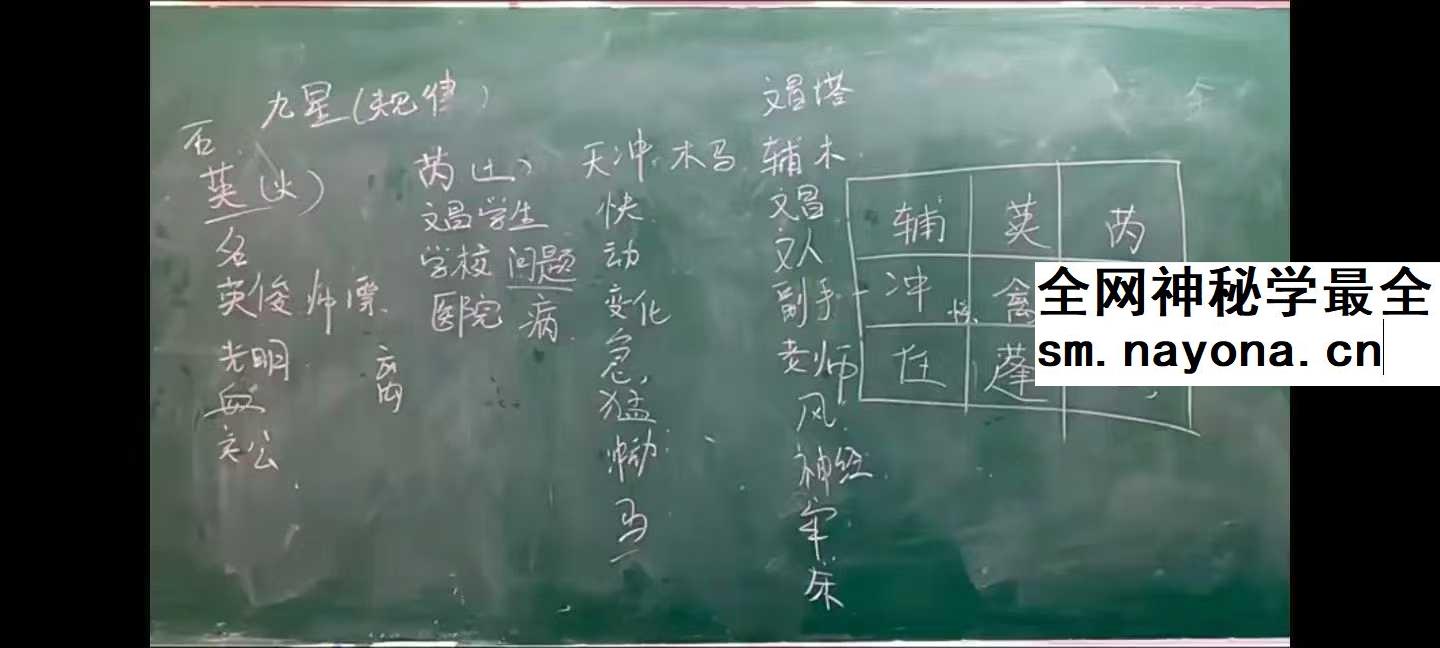 九星（规律）
英（火）
名
英俊 帅 漂
光明
血
关公
芮（土）
文昌学生
学校 问题
医院 病
天冲 木马
快
动
变化
急
猛
冲动
马
文昌塔
辅木
文昌
文人
副手
老师
风
神经
牢
床
辅 英 芮
冲 禽
任 蓬
全网神秘学最全
sm.nayona.cn